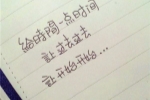 给時間一点时间
让过去过去
让开始开始...